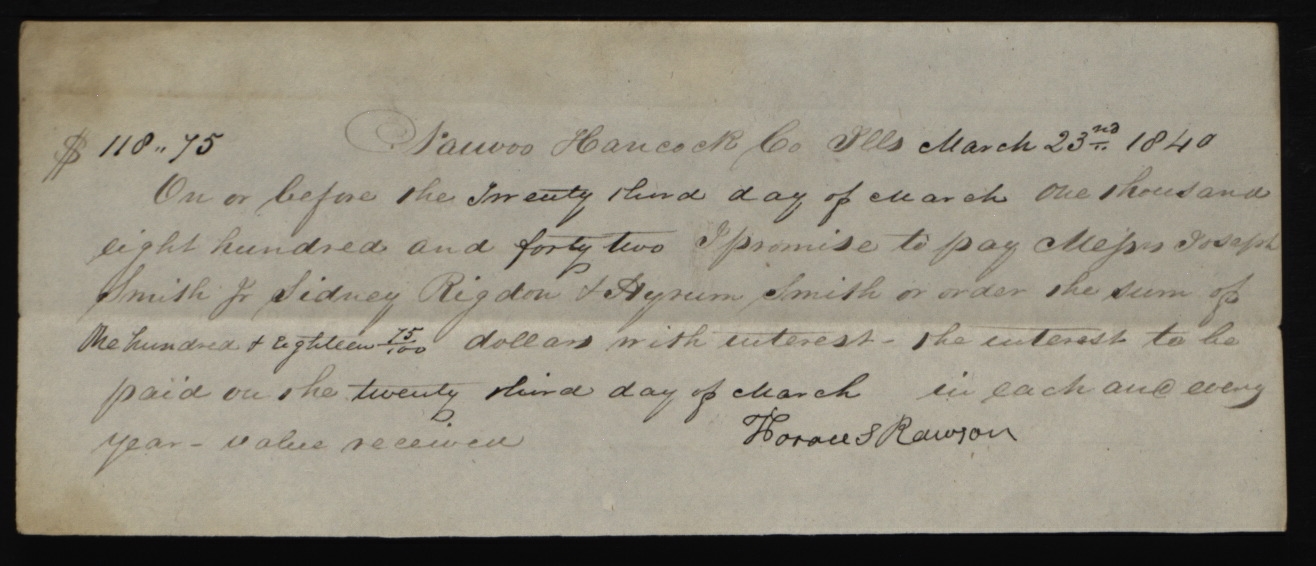 $ 118.. 75 Nauvoo Hancock Co Ills March 23nd 1840
On or before the Twenty third day of March one thousand
eight hundred and forty two I promise to pay Messrs Joseph
Smith Jr Sidney Rigdon & Hyrum Smith or order the sum of
One hundred & Eighteen 75/100 dollars with interest - the interest to be
paid on the twenty third day of March in each and every
year - value received Horace S Rawson